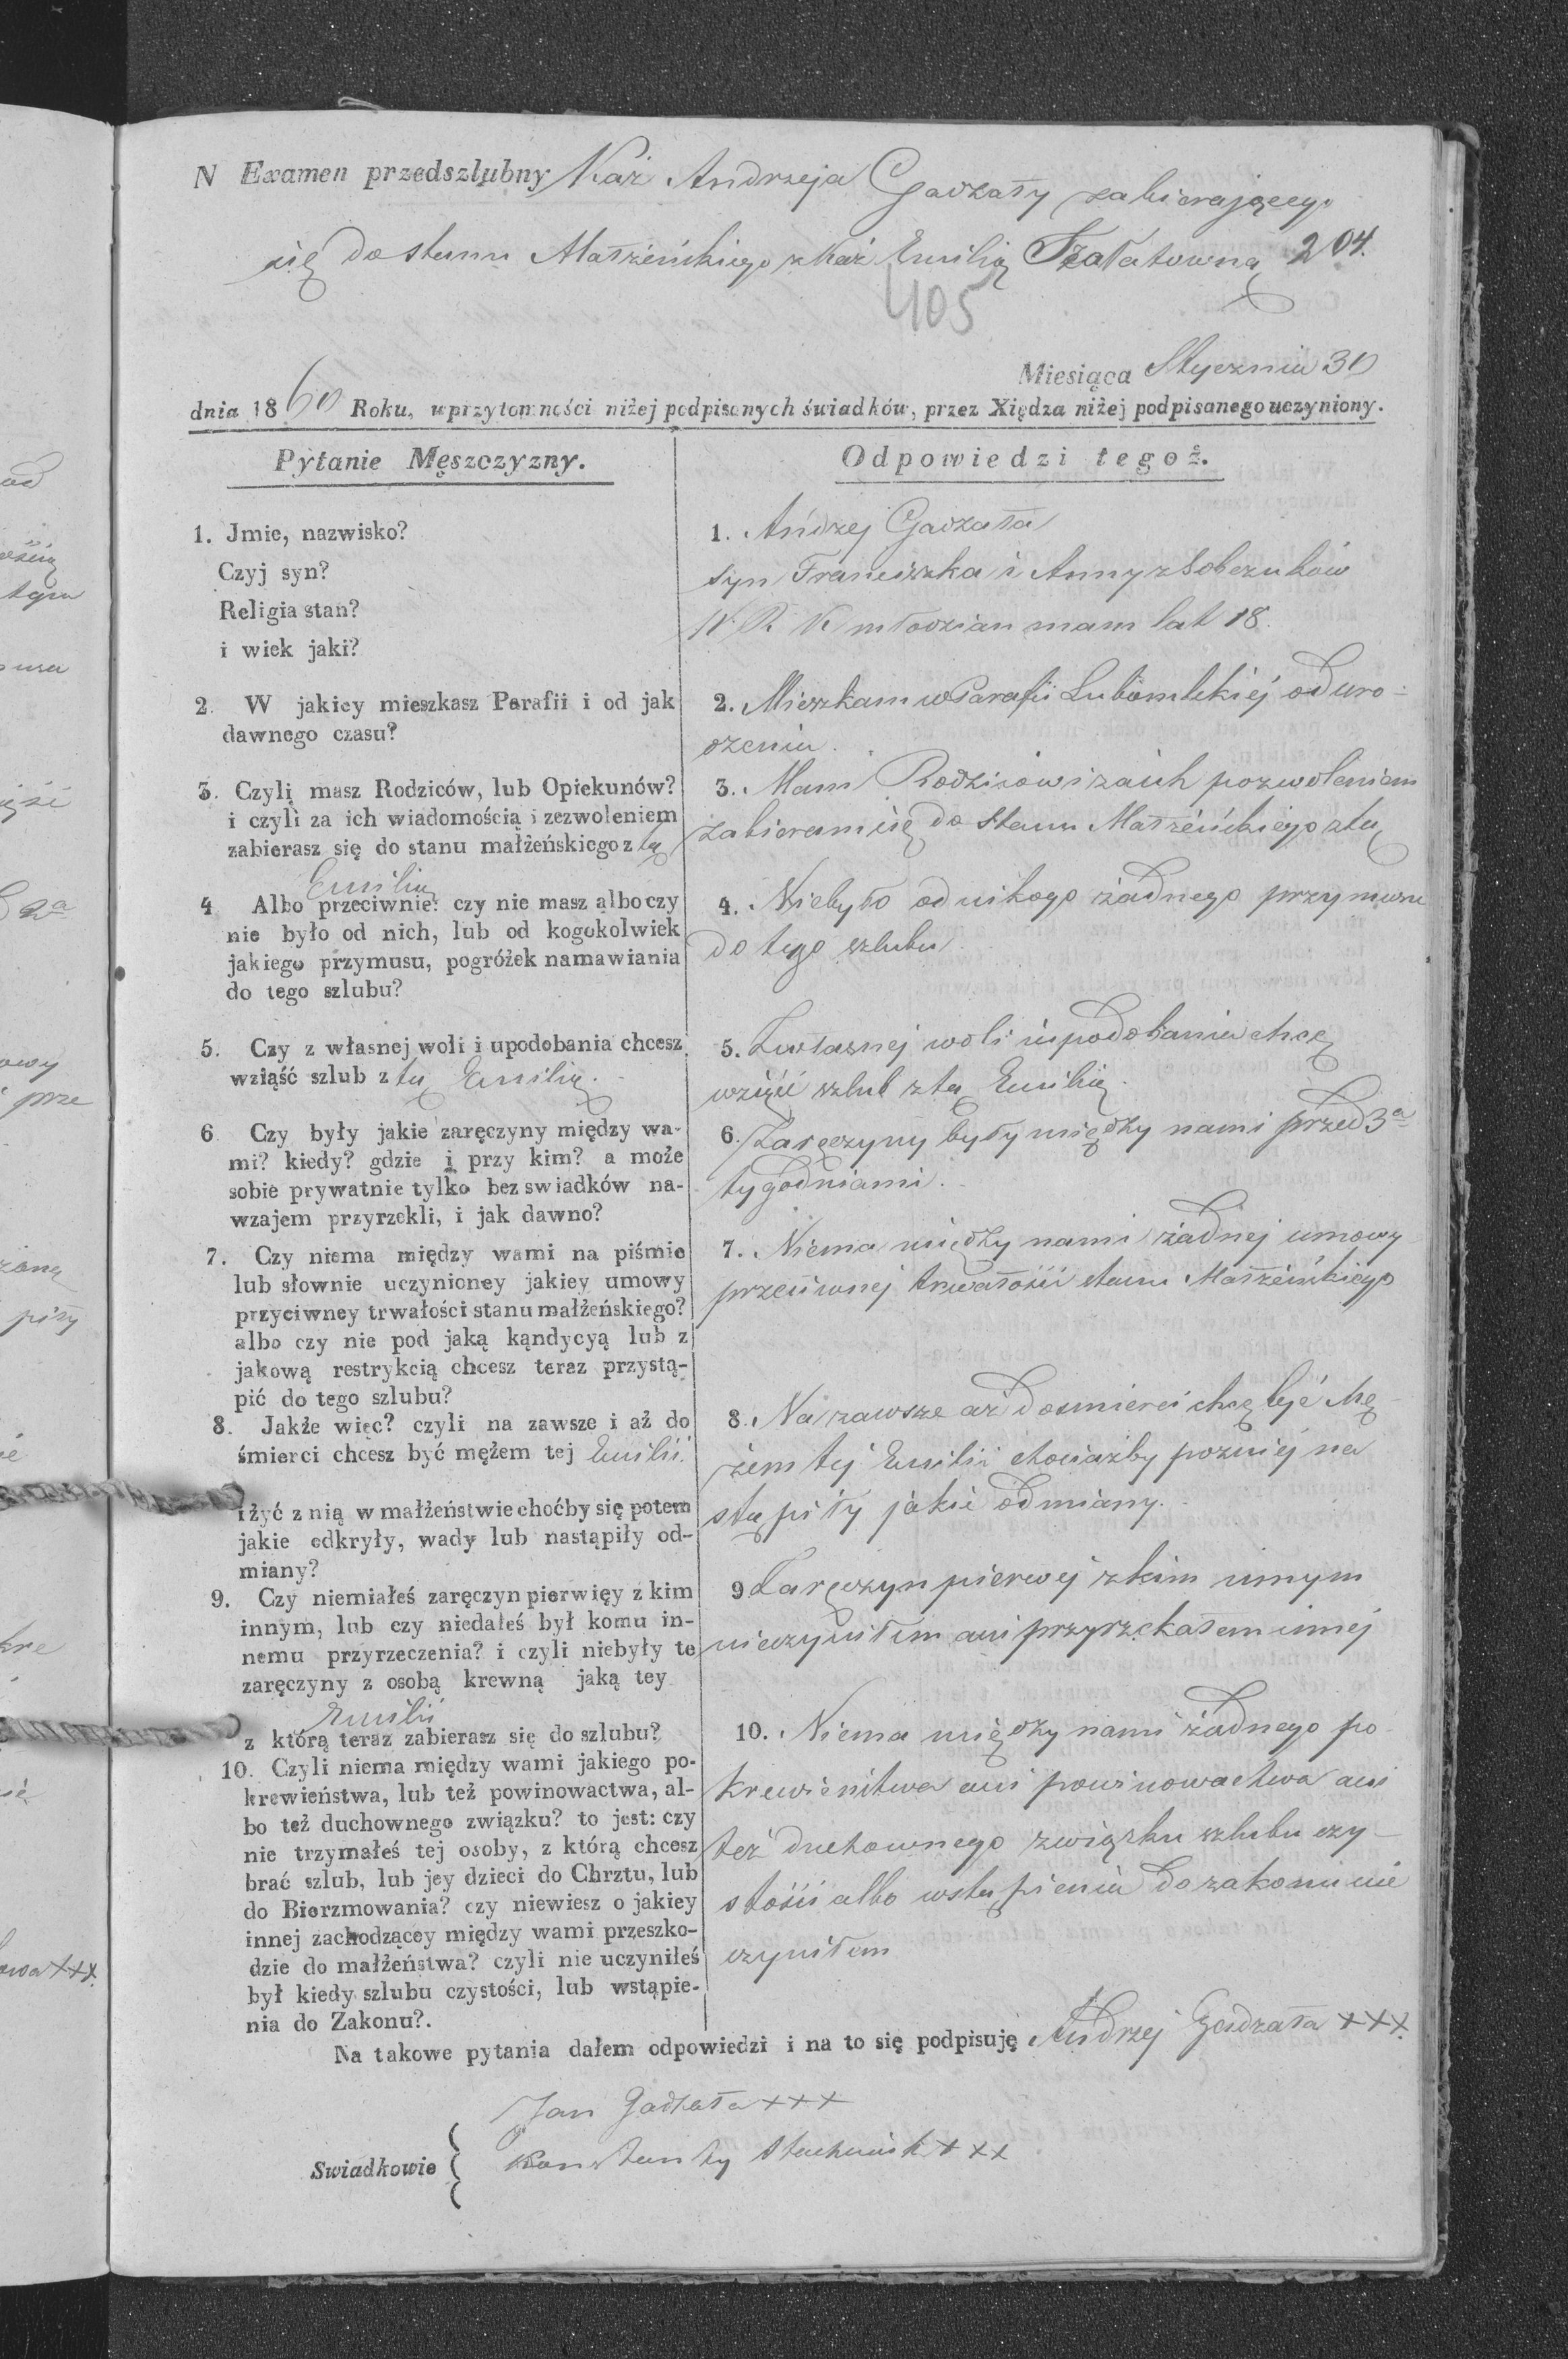 N Examen przedszlubny Kaź Andrzeja Gadzały zabierającego
się do stanu Małżeńskiego z Kaź Emilią Szałatowną 204.
405
Miesiąca Stycznia 30
dnia 1860 Roku, w przytomności niżej podpisanych świadków, przez Xiędza niżej podpisanego uczyniony.
Pytanie Męszczyzny.
1. Jmie, nazwisko?
Czyj syn?
Religia stan?
i wiek jaki?
2. W jakiey mieszkasz Parafii i od jak
dawnego czasu?
3. Czyli masz Rodziców, lub Opiekunów?
i czyli za ich wiadomością i zezwoleniem
zabierasz się do stanu małżeńskiego z tą
Emilią
4 Albo przeciwnie? czy nie masz albo czy
nie było od nich, lub od kogokolwiek
jakiego przymusu, pogróżek namawiania
do tego szlubu?
5. Czy z własnej woli i upodobania chcesz
wziąść szlub z tą Emilią.
6 Czy były jakie zaręczyny między wa-
mi? kiedy? gdzie i przy kim? a może
sobie prywatnie tylko bez swiadków na-
wzajem przyrzekli, i jak dawno?
7. Czy niema między wami na piśmie
lub słownie uczynioney jakiey umowy
przyciwney trwałości stanu małżeńskiego?
albo czy nie pod jaką kąndycyą lub z
jakową restrykcią chcesz teraz przystą-
pić do tego szlubu?
8. Jakże więc? czyli na zawsze i aż do
śmierci chcesz być mężem tej Emilii.
i żyć z nią w małżeństwie choćby się potem
jakie odkryły, wady lub nastąpiły od-
miany?
9. Czy niemiałeś zaręczyn pierwięy z kim
innym, lub czy niedałeś był komu in-
nemu przyrzeczenia? i czyli niebyły te
zaręczyny z osobą krewną jaką tey
Emilii
z którą teraz zabierasz się do szlubu?
10. Czyli niema między wami jakiego po-
krewieństwa, lub też powinowactwa, al-
bo też duchownego związku? to jest: czy
nie trzymałeś tej osoby, z którą chcesz
brać szlub, lub jey dzieci do Chrztu, lub
do Bierzmowania? czy niewiesz o jakiey
innej zachodzącey między wami przeszko-
dzie do małżeństwa? czyli nie uczyniłeś
był kiedy szlubu czystości, lub wstąpie-
nia do Zakonu?.
Odpowiedzi tegoż.
1. Andrzej Gadzała
syn Franciszka i Anny z Sobczuków
W. R. K młodzian mam lat 18.
2. Mieszkam w Parafii Lubomlskiéj od uro-
dzenia.
3. Mam Rodziców i za ich pozwoleniem
zabieram się do stanu Małżeńskiego z tą
4. Niebyło od nikogo żadnego przymusu
do tego szlubu
5. Z własnej woli i upodobania chcę
wziąść szlub z tą Emilią.
6. Zaręczyny były między nami przed 3a
tygodniami.
7. Niema między nami żadnej umowy
przeciwnej trwałości stanu Małżeńskiego
8. Na zawsze aż do smierci chcę być Mę-
żem tej Emilii chociażby pozniej na
stąpiły jakie odmiany.
9 Zaręczyn pierwej z kim innym
nieczyniłem ani przyrzekałem innej
10. Niema między nami żadnego po
krewieństwa ani powinowactwa ani
też duchownego związku szlubu czy-
stości albo wstąpienia do zakonu nie
czyniłem
Na takowe pytania dałem odpowiedzi i na to się podpisuję Andrzej Gadzała +++.
Jan Gadzała +++
Swiadkowie Konstanty Stachniuk +++